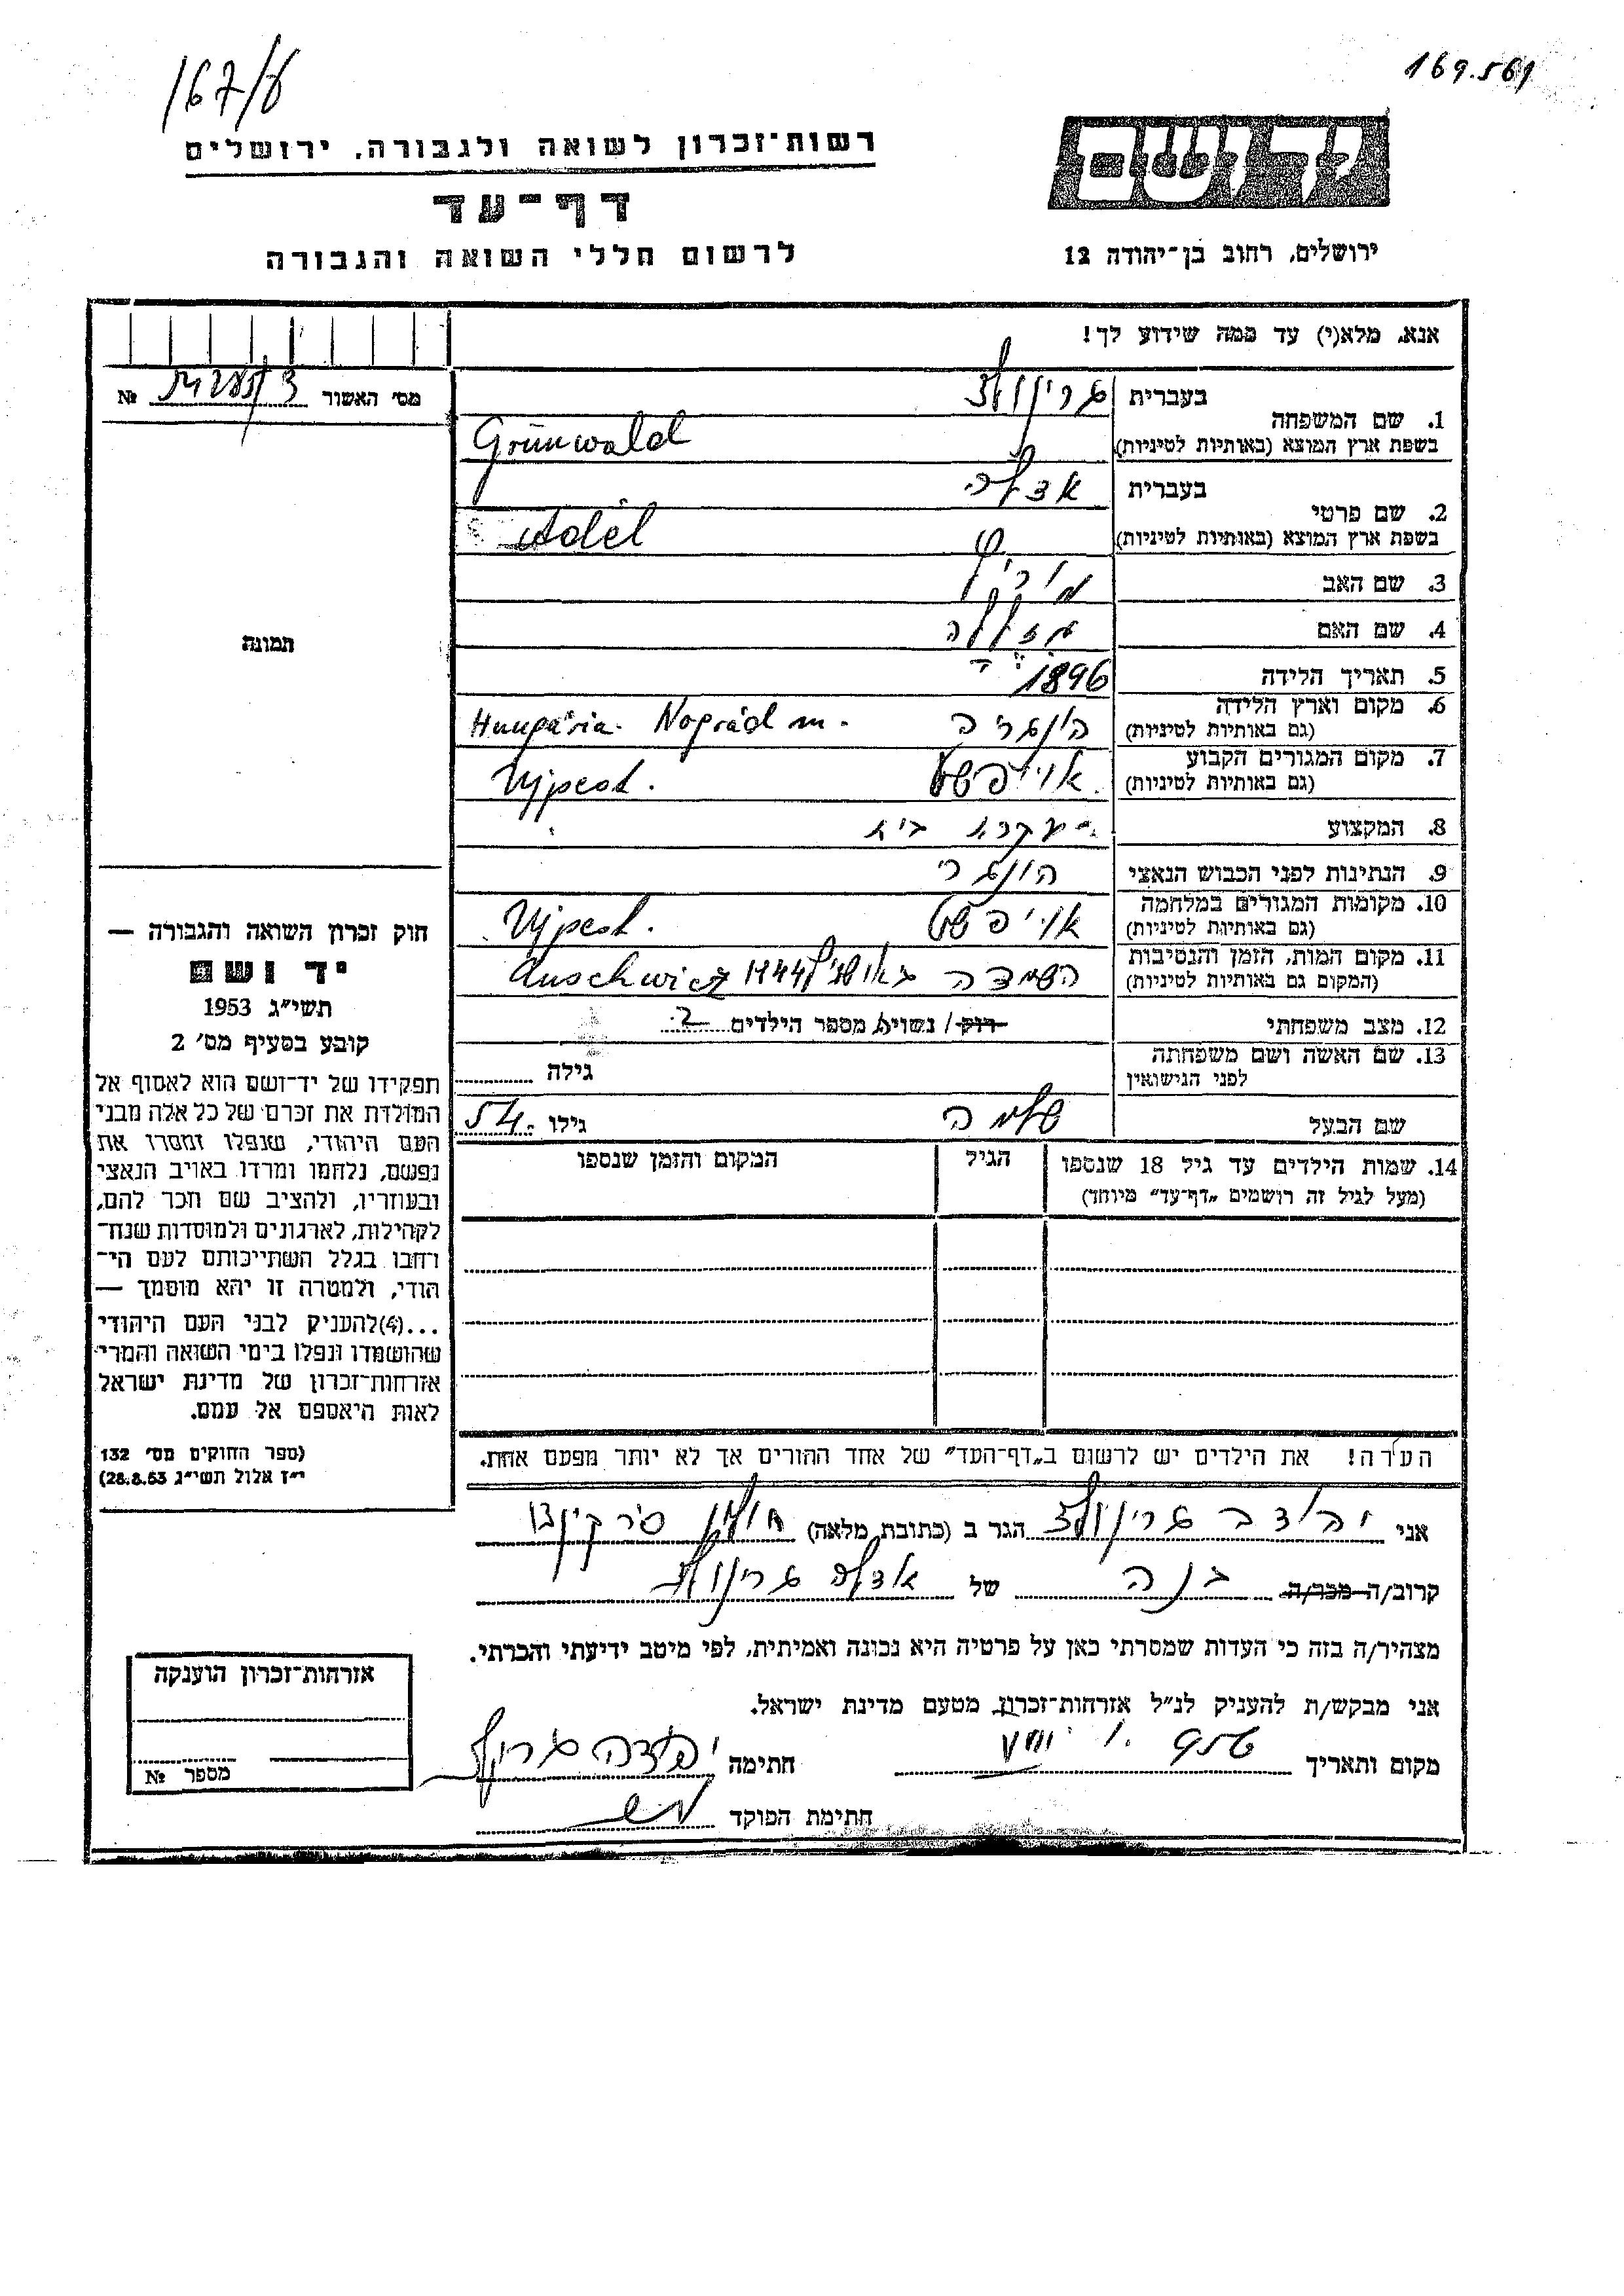 167/ע
169.561
רשות־זכרון לשואה ולגבורה, ירושלים
יד ושם
דף־עד
לרשום חללי השואה והגבורה
ירושלים, רחוב בן־יהודה 12
אנא, מלא(י) עד כמה שידוע לך!
מס׳ האשור № 
1. שם המשפחה
בעברית גרינולד
בשפת ארץ המוצא (באותיות לטיניות) Grünwald
2. שם פרטי
בעברית אדלה
בשפת ארץ המוצא (באותיות לטיניות) Adél
3. שם האב מוריץ
4. שם האם
5. תאריך הלידה 1896
6. מקום וארץ הלידה הונגריה Hungária. Nográd m.
(גם באותיות לטיניות)
7. מקום המגורים הקבוע אויפשט Ujpest.
(גם באותיות לטיניות)
8. המקצוע עקרת בית
9. הנתינות לפני הכבוש הנאצי הונגרי
10. מקומות המגורים במלחמה אויפשט Ujpest.
(גם באותיות לטיניות)
11. מקום המות, הזמן והנסיבות השמדה 1944 Auschwicz
(המקום גם באותיות לטיניות)
12. מצב משפחתי רוק / נשוי/א מספר הילדים 2
13. שם האשה ושם משפחתה
לפני הנישואין גילה
שם הבעל שלמה גילו 54
14. שמות הילדים עד גיל 18 שנספו
(מעל לגיל זה רושמים „דף־עד” מיוחד)
הגיל
המקום והזמן שנספו
הערה! את הילדים יש לרשום ב„דף־העד” של אחד ההורים אך לא יותר מפעם אחת.
תמונה
חוק זכרון השואה והגבורה —
יד ושם
תשי״ג 1953
קובע בסעיף מס׳ 2
תפקידו של יד־ושם הוא לאסוף אל
המולדת את זכרם של כל אלה מבני
העם היהודי, שנפלו ומסרו את
נפשם, נלחמו ומרדו באויב הנאצי
ובעוזריו, ולהציב שם וזכר להם,
לקהילות, לארגונים ולמוסדות שנח־
רבו בגלל השתייכותם לעם הי־
הודי, ולמטרה זו יהא מוסמך —
...(4)להעניק לבני העם היהודי
שהושמדו ונפלו בימי השואה והמרי
אזרחות־זכרון של מדינת ישראל
לאות היאספם אל עמם.
(ספר החוקים מס׳ 132
י״ז אלול תשי״ג 28.8.53)
אני גרינולד הגר ב (כתובת מלאה) חולון
קרוב/ה מכר/ה בנה של אדלה גרינולד
מצהיר/ה בזה כי העדות שמסרתי כאן על פרטיה היא נכונה ואמיתית, לפי מיטב ידיעתי והכרתי.
אני מבקש/ת להעניק לנ״ל אזרחות־זכרון מטעם מדינת ישראל.
מקום ותאריך
חתימה
חתימת הפוקד
אזרחות־זכרון הוענקה
מספר №